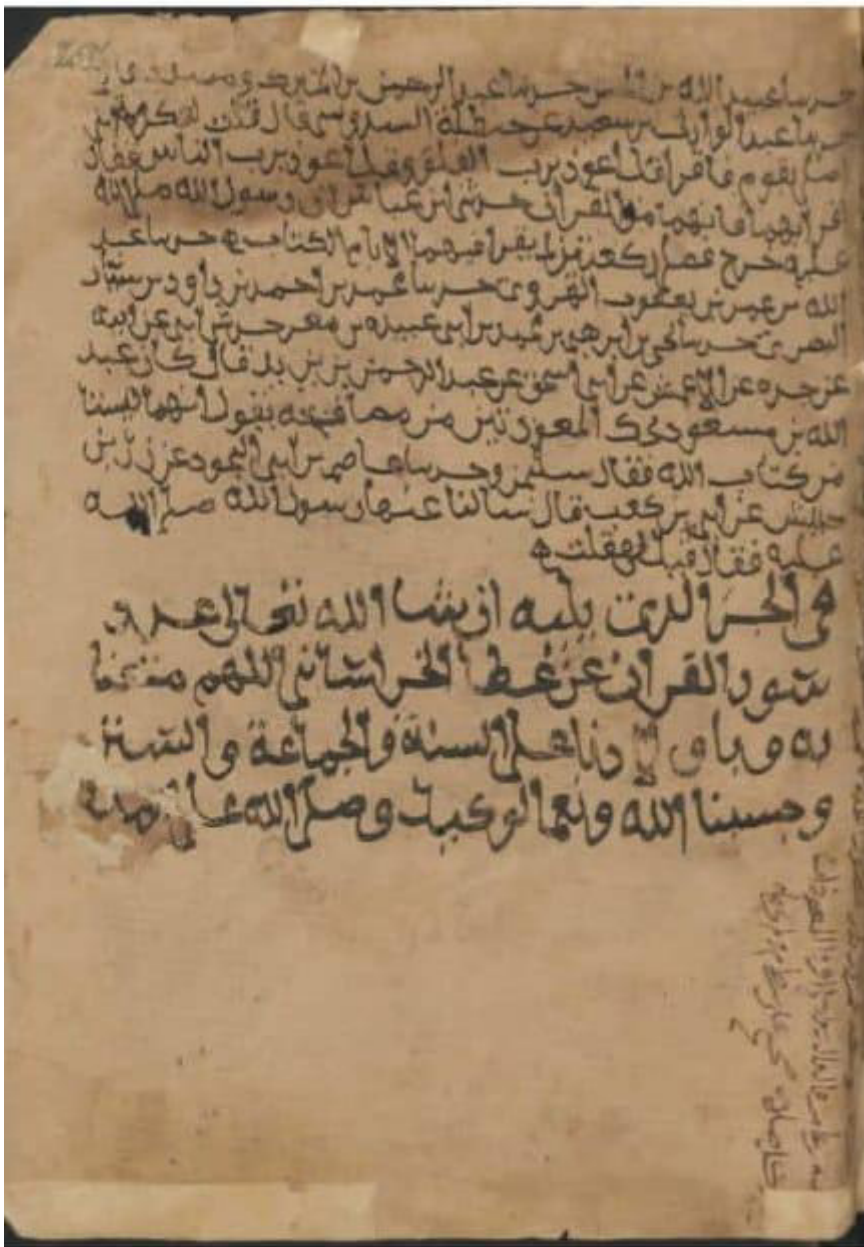 حدثنا عبيد الله بن حدثنا عبد الرحمن بن المبرك و مسدد
حدثنا عبد الوارث بن سعيد عن حنظلة السدوسي قال قلت لعكرمة اني
اصلي بقوم فاقرا قل اعوذ برب الفلق و قل اعوذ برب الناس فقال
اقرا بهما فانهما من القران حدثني ابن عباس ان رسول الله صلى الله
عليه خرج فصلى ركعتين لم يقرا فيهما الا بام الكتاب ه حدثنا عبد
الله بن محمد بن يعقوب الهروي حدثنا محمد بن احمد بن داود بن سيار
البصري حدثنا يحيى بن ابرهيم بن محمد بن ابي عبيده بن معن حدثني ابي عن ابيه
عن جده عن الاعمش عن ابي اسحق عن عبد الرحمن بن يزيد قال كان عبد
الله بن مسعود يحك المعوذتين من مصاحفه يقول انهما ليستا
من كتاب الله فقال سليمن وحدثنا عاصم بن ابي النجود عن زر بن
حبيش عن ابي بن كعب قال سالنا عنها رسول الله صلى الله
عليه فقال قيل لي فقلت ه
في الجز الذي يليه ان شا الله تعالى عدد
سور القران عن عطا الخراساني اللهم متعنا
به و بـ لادنا على السنة والجماعة والستر
وحسبنا الله ونعم الوكيل وصلى الله على محمد